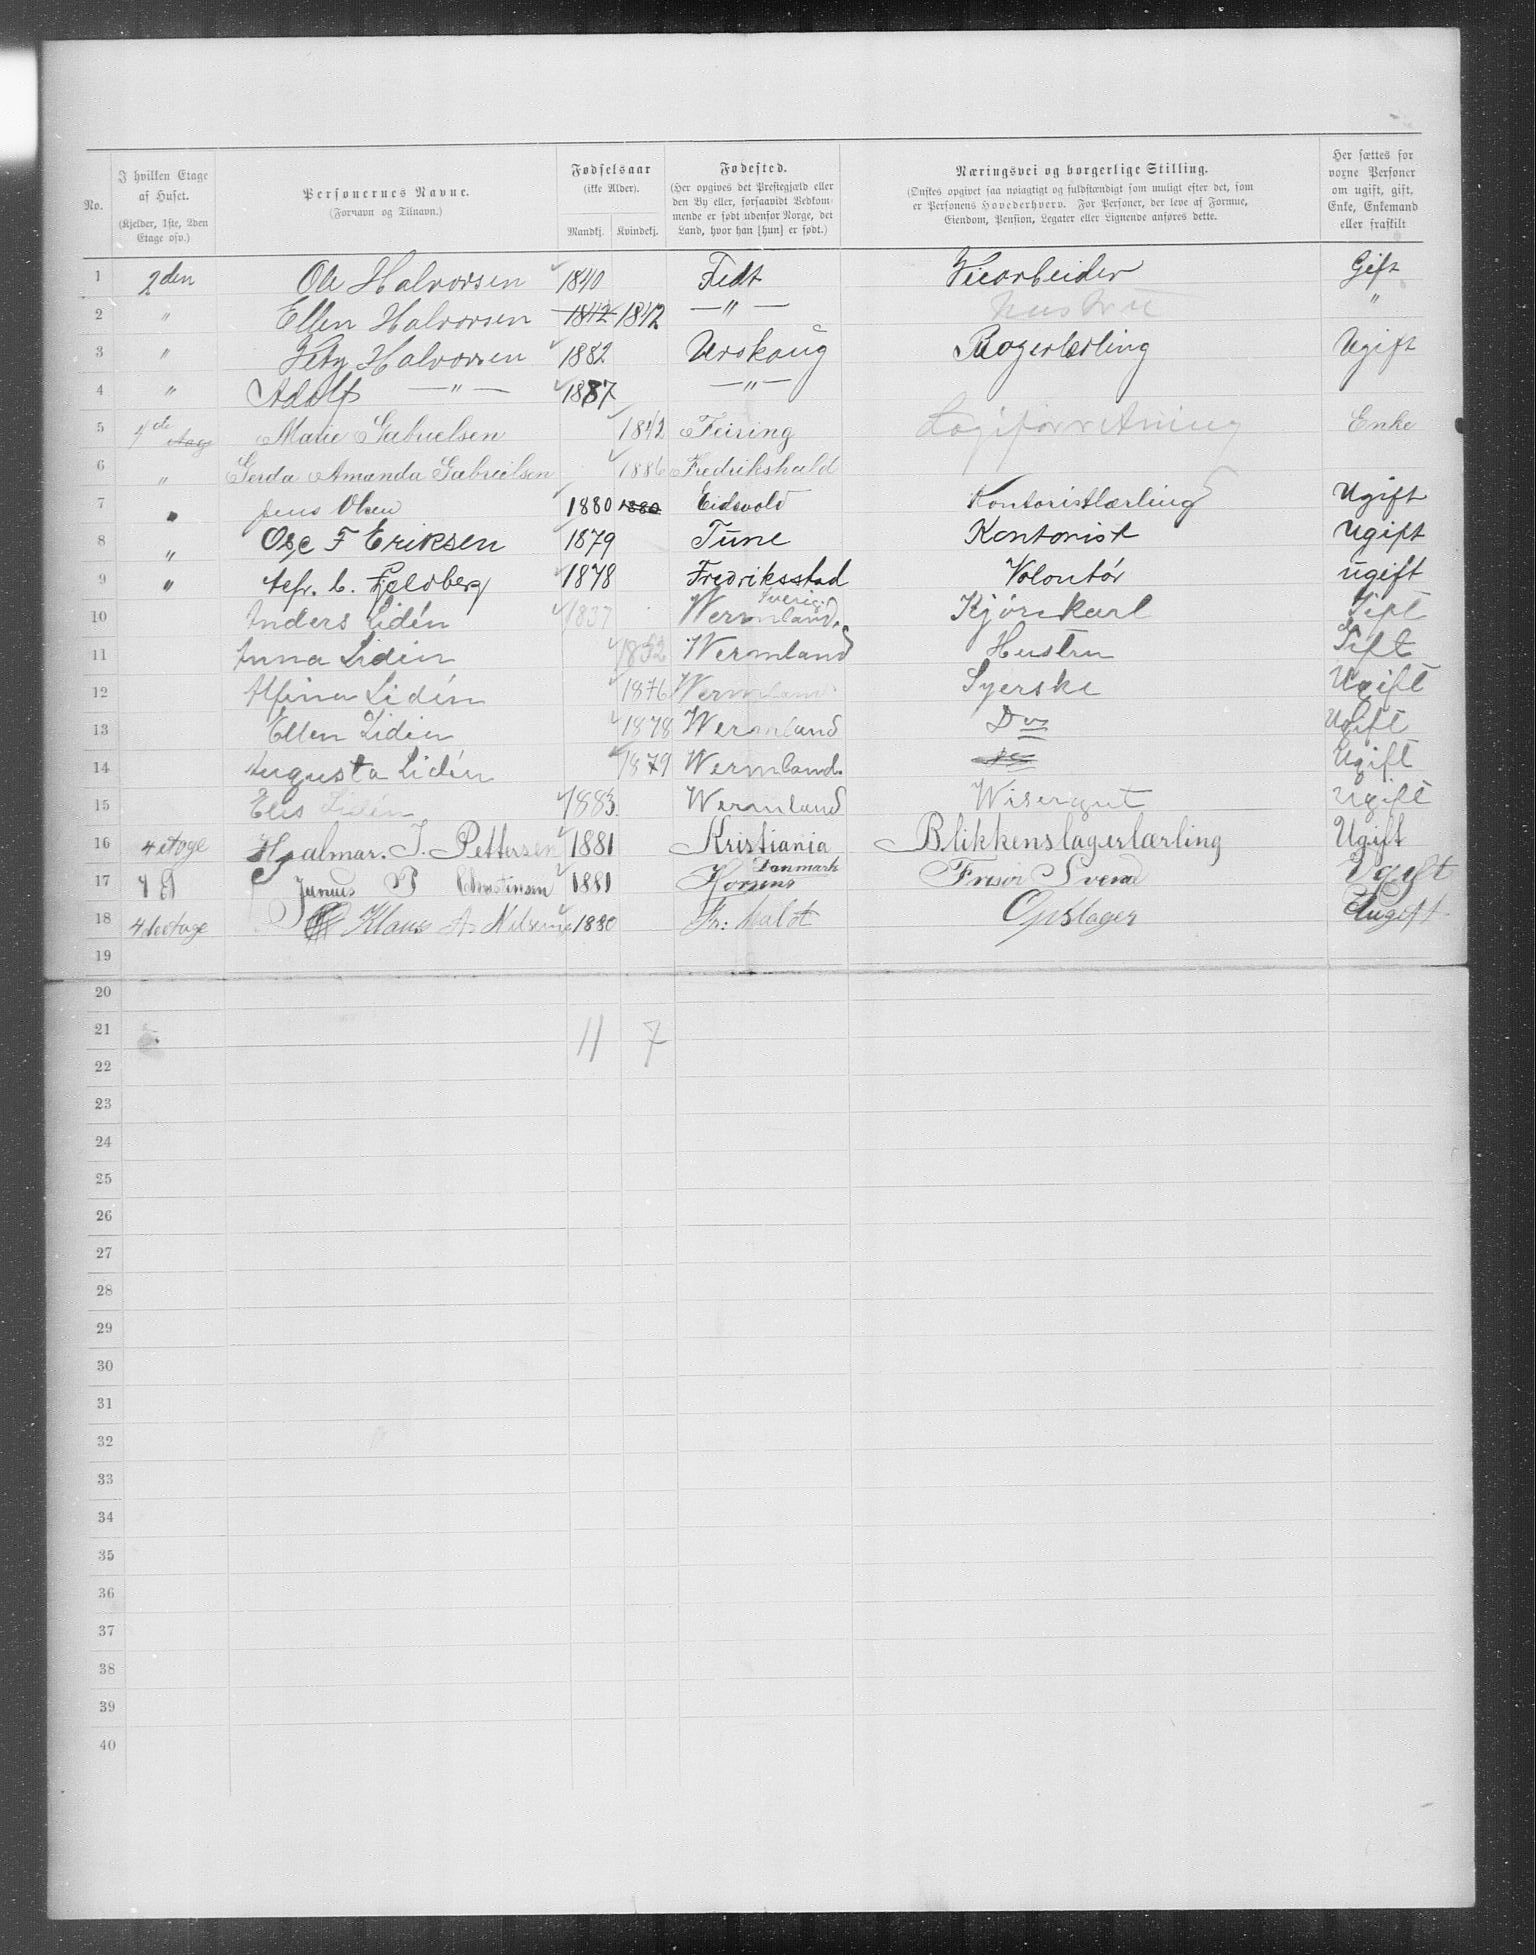 No.
I hvilken Etage af Huset.
(Kjelder, 1ste, 2den Etage osv.)
Personernes Navne.
(Fornavn og Tilnavn.)
Fødselsaar
(ikke Alder).
Mandkj. Kvindekj.
Fødested.
(Her opgives det Prestegjæld eller den By eller, forsaavidt Vedkommende er født udenfor Norge, det Land, hvor han [hun] er født.)
Næringsvei og borgerlige Stilling.
(Ønskes opgivet saa nøiagtigt og fuldstændigt som muligt efter det, som er Personens Hovederhverv. For Personer, der leve af Formue, Eiendom, Pension, Legater eller Lignende anføres dette.
Her sættes for voxne Personer om ugift, gift, Enke, Enkemand eller fraskilt
1 2den Ole Halvorsen 1840 Fedt Veiarbeider Gift
2 " Ellen Halvorsen 1842 1842 —"— Hustru "
3 " Halvorsen 1882 Urskoug Bagerlærling Ugift
4 " Adolf —"— 1887 —"—
5 4de Etage Marie Gabrielsen 1842 Feiring Logiforretning Enke
6 " Gerda Amanda Gabrielsen 1886 Fredrikshald
7 " Jens Olsen 1880 1880 Eidsvold Kontoristlærling Ugift
8 " Osc F Eriksen 1879 Tune Kontorist Ugift
9 " Alfr. C. Feldberg 1878 Fredriksstad Volontør ugift
10 Anders Lidén 1837 Wermland Sverig. Kjørekarl Gift
11 Anna Lidén 1832 Wermland Hustru Gift
12 Alfina Lidén 1876 Wermland Syerske Ugift
13 Ellen Lidén 1878 Wermland Do Ugift
14 Augusta Lidén 1879 Wermland. Ugift
15 Elis Lidén 1883 Wermland Wisergut Ugift
16 4 etage Hjalmar. J. Pettersen 1881 Kristiania Blikkenslagerlærling Ugift
17 4 Junius P Christinsen 1881 Horsens Danmark Frisør Svend Ugift
18 4de etage Klaus A. Nilsen 1880 Fr: hald Opslager Ugift
19
20
21 11 7
22
23
24
25
26
27
28
29
30
31
32
33
34
35
36
37
38
39
40